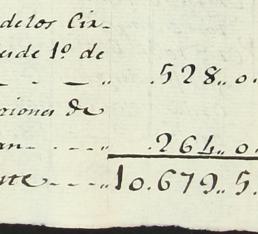 de los Cir-
desde 1º de
- - - " .528,, 0.
ciones de
an- - - - " .264,, 0.
nte - - - " 10.679,, 5.